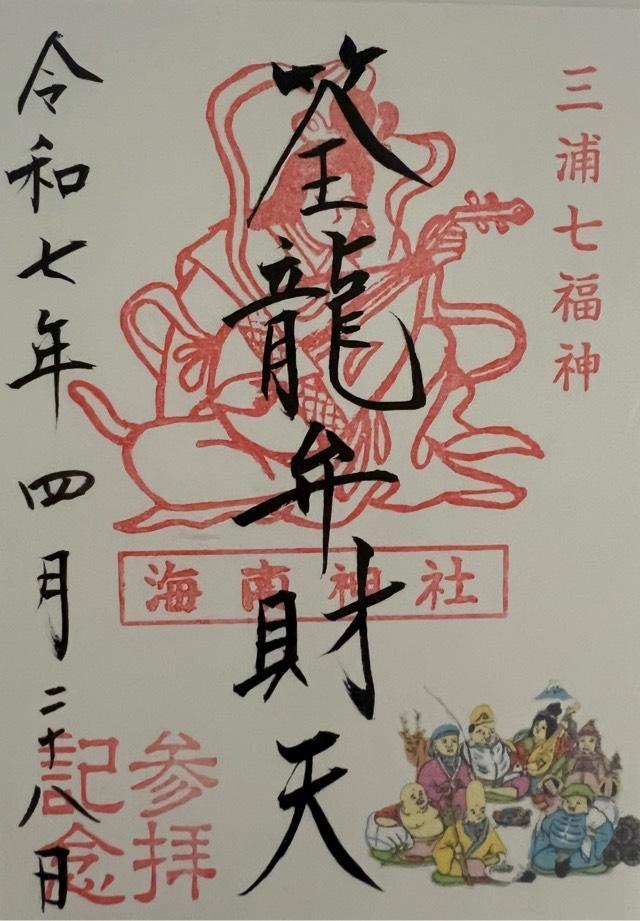 三浦七福神
筌龍弁財天
海南神社
参拝
記念
令和七年四月二十八日